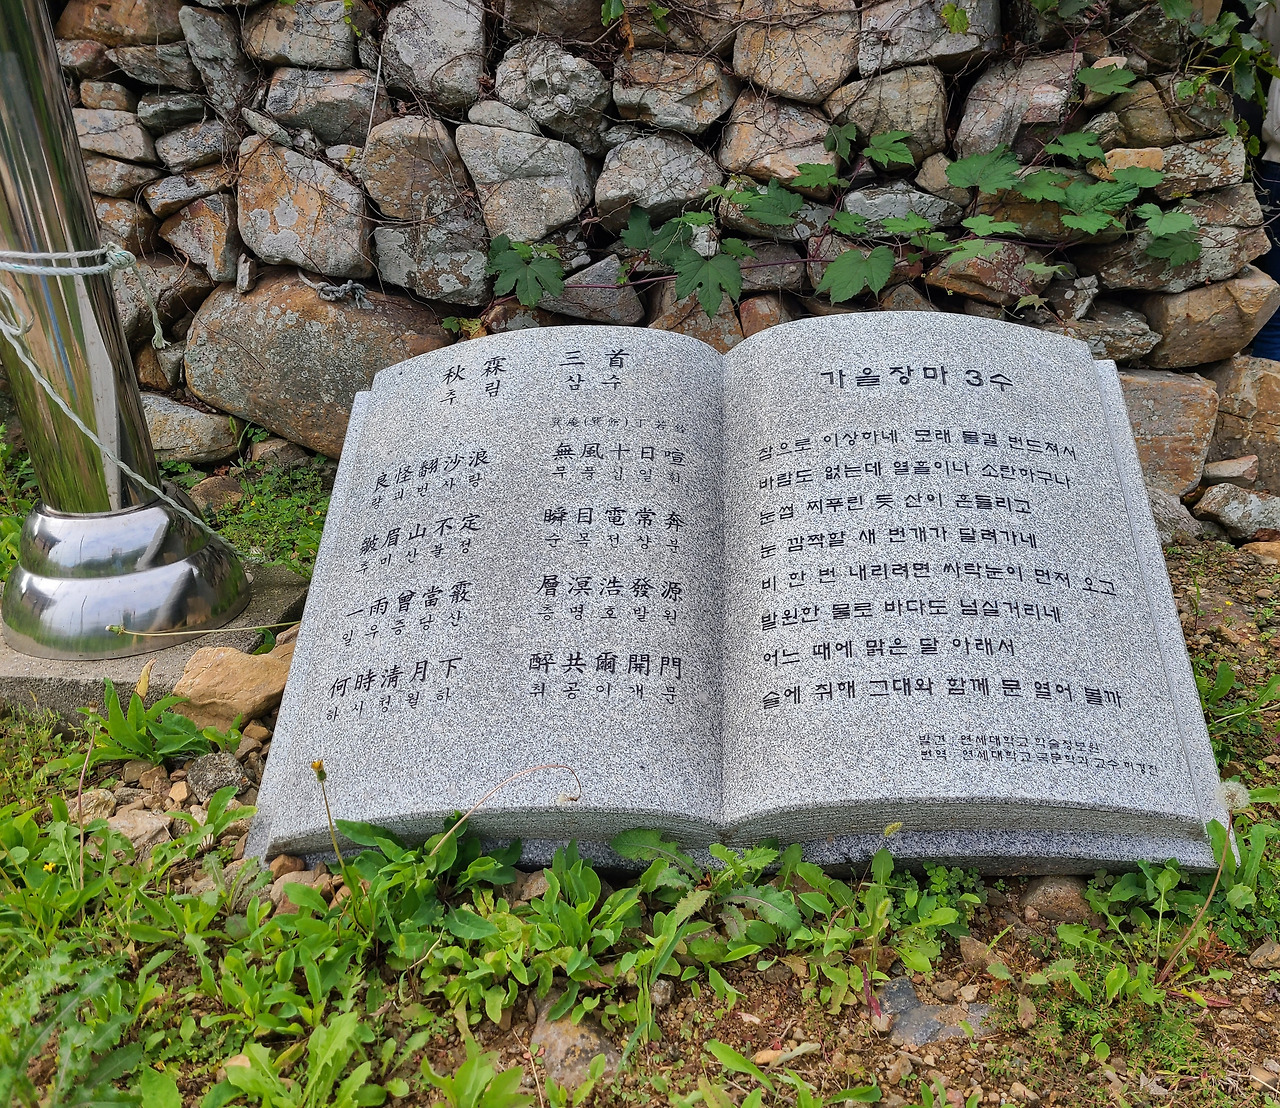 秋霖 三首
추림 삼수
良怪翻沙浪 無風十日喧
량괴번사랑 무풍십일훤
皺眉山不定 瞬目電常奔
추미산불정 순목전상분
一雨曾當霰 層溟浩發源
일우증당산 층명호발원
何時清月下 醉共爾開門
하시청월하 취공이개문
가을장마 3수
참으로 이상하네. 모래 물결 번드쳐서
바람도 없는데 열흘이나 소란하구나
눈썹 찌푸린 듯 산이 흔들리고
눈 깜짝할 새 번개가 달려가네
비 한 번 내리려면 싸락눈이 먼저 오고
발원한 물로 바다도 넘실거리네
어느 때에 맑은 달 아래서
술에 취해 그대와 함께 문 열어 볼까
발견 : 연세대학교 학술정보원
번역 : 연세대학교 국문학과 교수 허경진